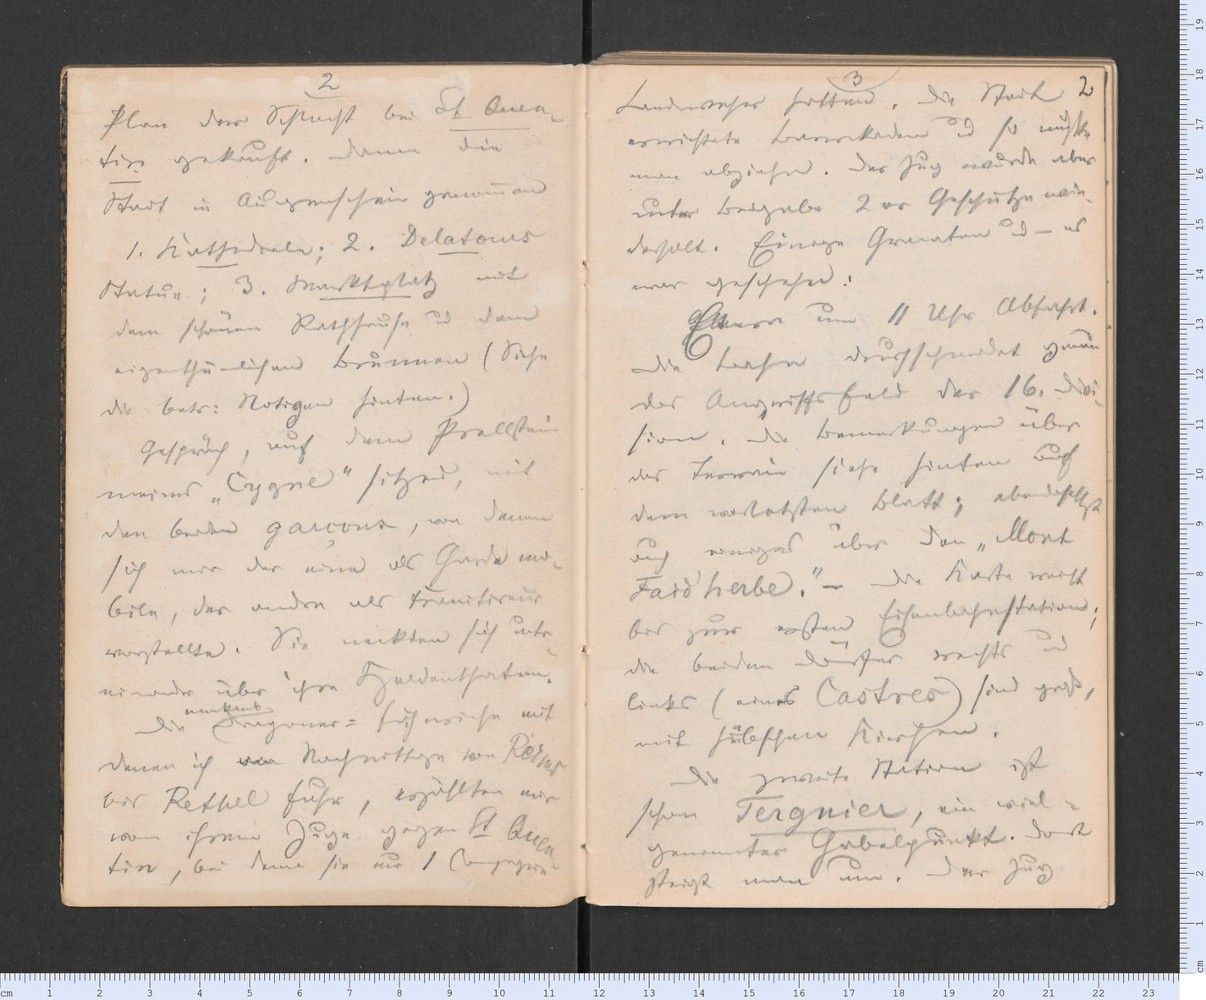 2
Plan der Schlacht bei St Quen-
tin gekauft. Dann die
Stadt in Augenschein genommen
1. Kathedrale; 2. Delatours
Statue; 3. Marktplatz mit
dem schönen Rathhause u dem
eigenthümlichen Brunnen (Siehe
die betr: Notizen hinten.)
Gespräch, auf dem Prellstein
meines „Cygne" sitzend, mit
den beiden garçons, von denen
sich mir der eine als Garde mo-
bile, der andre als Francstireur
vorstellte. Sie neckten sich unter-
einander über ihre Heldenthaten.
Die Dragoner= mit
denen ich Nachmittags von Reims
bis Rethel fuhr, erzählten mir
von ihrem Zuge gegen St Quen-
tin, bei dem sie nur 1 Compagnie
3
2
Landwehr hatten. Die Stadt
errichtete Barrikaden u so mußte
man abziehn. Der Zug wurde aber
unter Beigabe 2er Geschütze wie-
derholt. Einige Granaten u – es
war geschehen.
Etwa um 11 Uhr Abfahrt.
Die Bahn durchschneidet genau
das Angriffsfeld der 16. Divi-
sion. Die Bemerkungen über
das Terrain siehe hinten auf
dem vorletzten Blatt; ebendaselbst
auch einiges über den „Mont
Faid'herbe." – Die Karte reicht
bis zur ersten Eisenbahnstation;
die beiden Dörfer rechts u
links (eines Castres) sind groß,
mit hübschen Kirchen.
Die zweite Station ist
schon Tergnier, ein viel-
genannter Gabelpunkt. Dort
steigt man um. Der Zug